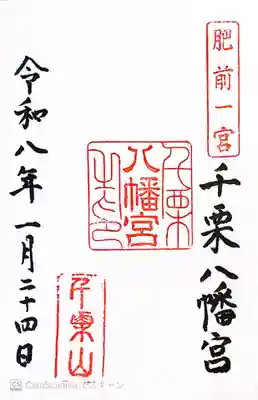 肥前一宮
千栗八幡宮
千栗
八幡宮
令和八年一月二十四日
千栗山
CamScannerでスキャン